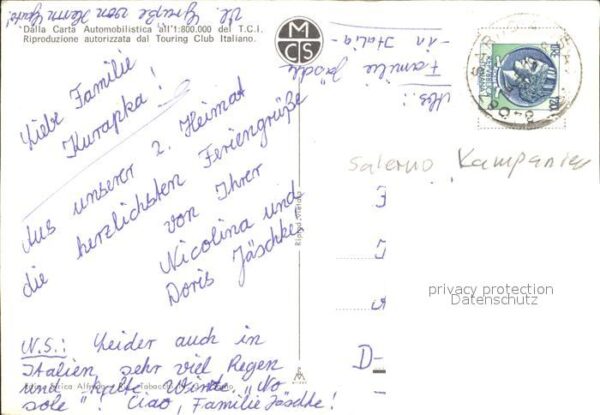 Dalla Carta Automobilistica all'1:800.000 del T.C.I.
Riproduzione autorizzata dal Touring Club Italiano.
M
CS
Liebe Familie
Kurapka!
Aus unserer 2. Heimat
die herzlichsten Feriengrüße
von Ihrer
Nicolina und
Doris Jäschke
N.S.: Leider auch in
Italien sehr viel Regen
und kalte Winde. "No
sole"! Ciao, Familie Jäschke!
Abs.:
Familie Jäschke
- in Italia -
Salerno Kampanien
privacy protection
Datenschutz
D=